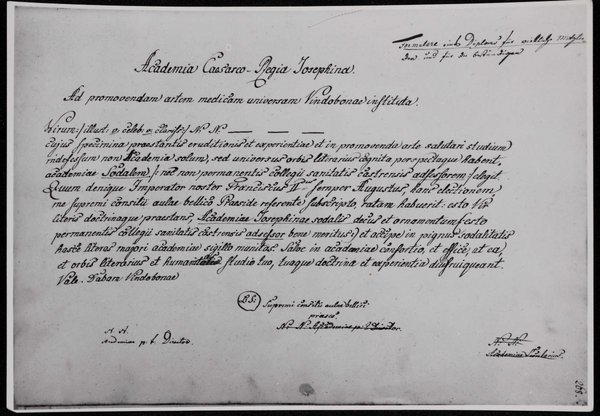 Formulare eines Diploms für
Academia Caesareo-Regia Josephina.
Ad promovendam artem medicam universam Vindobonae instituta.
Virum /: illust: et celeb: et clariss: / N. N. — — —
cujus specimina praestantis eruditionis et experientiae et in promovenda arte salutari studium
indefessum non Academia solum, sed universus orbis literarius cognita perspectaque habent,
academiae Sodalem /: nec non permanentis collegii sanitatis castrensis adsessorem :/ elegit.
Quum denique Imperator noster Franciscus II. Semper Augustus, hanc electionem,
me supremi consilii aulae bellico Praeside referente subscripto, ratam habuerit: esto Vir
literis doctrinaque praestans, Academiae Josephinae sodalis decus et ornamentum /: esto
permanentis collegii sanitatis castrensis adsessor bene meritus :/ et accipe in pignus sodalitatis
hasce literas majori academiae sigillo munitas. Salve in academiae consortio, et effice, ut ea,
et orbis literarius et humanitas studio tuo, tuaque doctrina et experientia diu fruiqueant.
Vale. Dabam Vindobonae
L.S. Supremi consilii aulae bellici
praeses.
N. N. Academiae p. t. Director.
N. N.
Academiae p. t. Director
N. N.
Academiae Secretarius.